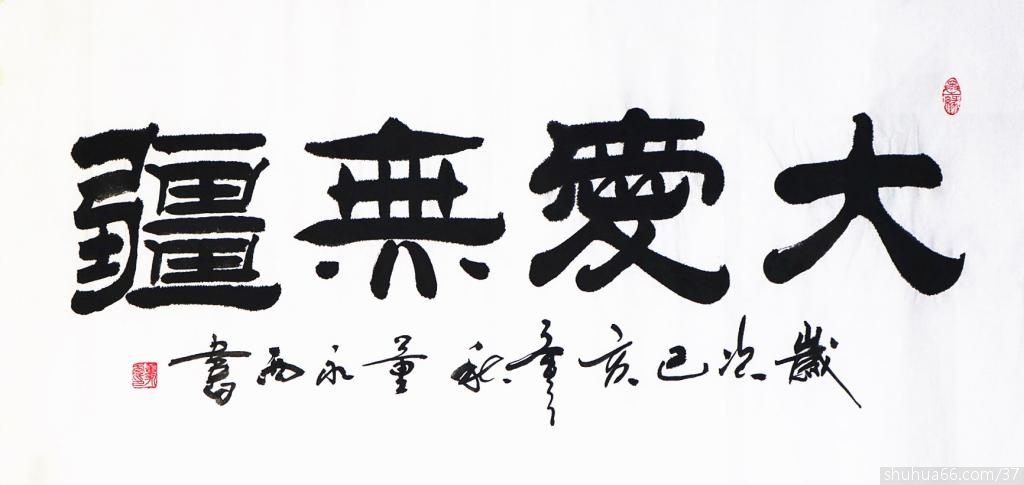 大愛無疆
歲次己亥秋董永西書
shuhua66.com/37